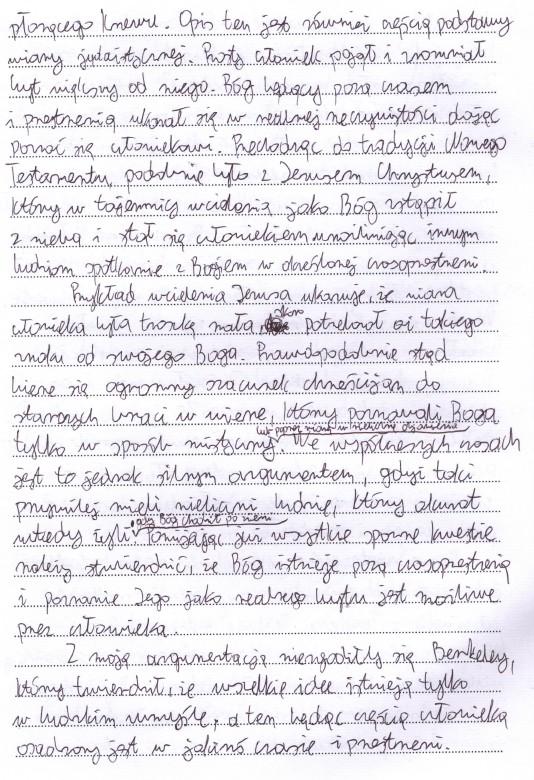 płonącego krzewu. Opis ten jest również częścią podstawy
wiary judaistycznej. Prosty człowiek pojął i zrozumiał
byt większy od niego. Bóg będący poza czasem
i przestrzenią ukazał się w realnej rzeczywistości dając
poznać się człowiekowi. Przechodząc do tradycji Nowego
Testamentu, podobnie było z Jezusem Chrystusem,
który w tajemnicy wcielenia jako Bóg zstąpił
z nieba i stał się człowiekiem umożliwiając innym
ludziom spotkanie z Bogiem w określonej czasoprzestrzeni.
Przykład wcielenia Jezusa ukazuje, że wiara
człowieka była troszkę mała, skoro potrzebował on takiego
znaku od swojego Boga. Prawdopodobnie stąd
bierze się ogromny szacunek chrześcijan do
starszych braci w wierze, którzy poznawali Boga
lub poprzez znaki
tylko w sposób mistyczny. We współczesnych czasach
jest to jednak silnym argumentem, gdyż taki
przywilej mieli nieliczni ludzie, którzy akurat
gdy Bóg chodził po ziemi
wtedy żyli. Pomijając już wszystkie sporne kwestie
należy stwierdzić, że Bóg istnieje poza czasoprzestrzenią
i poznanie Jego jako realnego bytu jest możliwe
przez człowieka.
Z moją argumentacją nie zgodziłby się Berkeley,
który twierdził, że wszelkie idee istnieją tylko
w ludzkim umyśle, a ten będąc częścią człowieka
osadzony jest w jakimś czasie i przestrzeni.